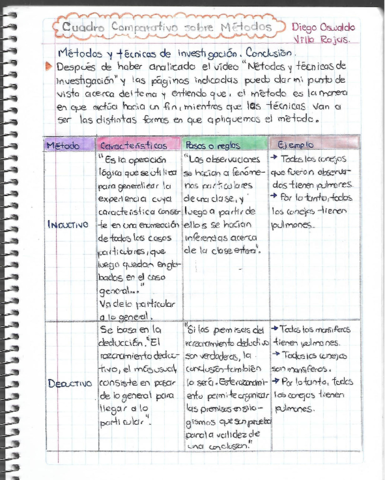 Cuadro Comparativo sobre Métodos
Diego Oswaldo
Villa Rojas.
Métodos y técnicas de investigación. Conclusión.
Después de haber analicado el video "Métodos y técnicas de
Investigación" y las páginas indicadas puedo dar mi punto de
vista acerca del tema y entiendo que, el método es la manera
en que actúa hacia un fin, mientras que las técnicas van a
ser las distintas formas en que apliquemos el método.
Método
Características
Pasos o reglas
Ejemplo
INDUCTIVO
"Es la operación
lógica que se utiliza
para generalizar la
experiencia cuya
característica consis-
te en una enumeración
de todos los casos
particulares, que
luego quedan englo-
bados en el caso
general..."
Va de lo particular
a lo general.
"Las observaciones
se hacían a fenóme-
nos particulares
de una clase, y
luego a partir de
ellos se hacían
inferencias acerca
de la clase entera".
→ Todos los conejos
que fueron observa-
dos tienen pulmones.
→ Por lo tanto, todos
los conejos tienen
pulmones.
DEDUCTIVO
Se basa en la
deducción. "El
razonamiento deduc-
tivo, el más usual,
consiste en pasar
de lo general para
llegar a lo
particular".
"Si las premisas del
razonamiento deductivo
son verdaderas, la
conclusión también
lo será. Este razonami-
ento permite organizar
las premisas en silo-
gismos que son prueba
para la validez de
una conclusión."
→ Todos los mamíferos
tienen pulmones.
→ Todos los conejos
son mamíferos.
→ Por lo tanto, todos
los conejos tienen
pulmones.